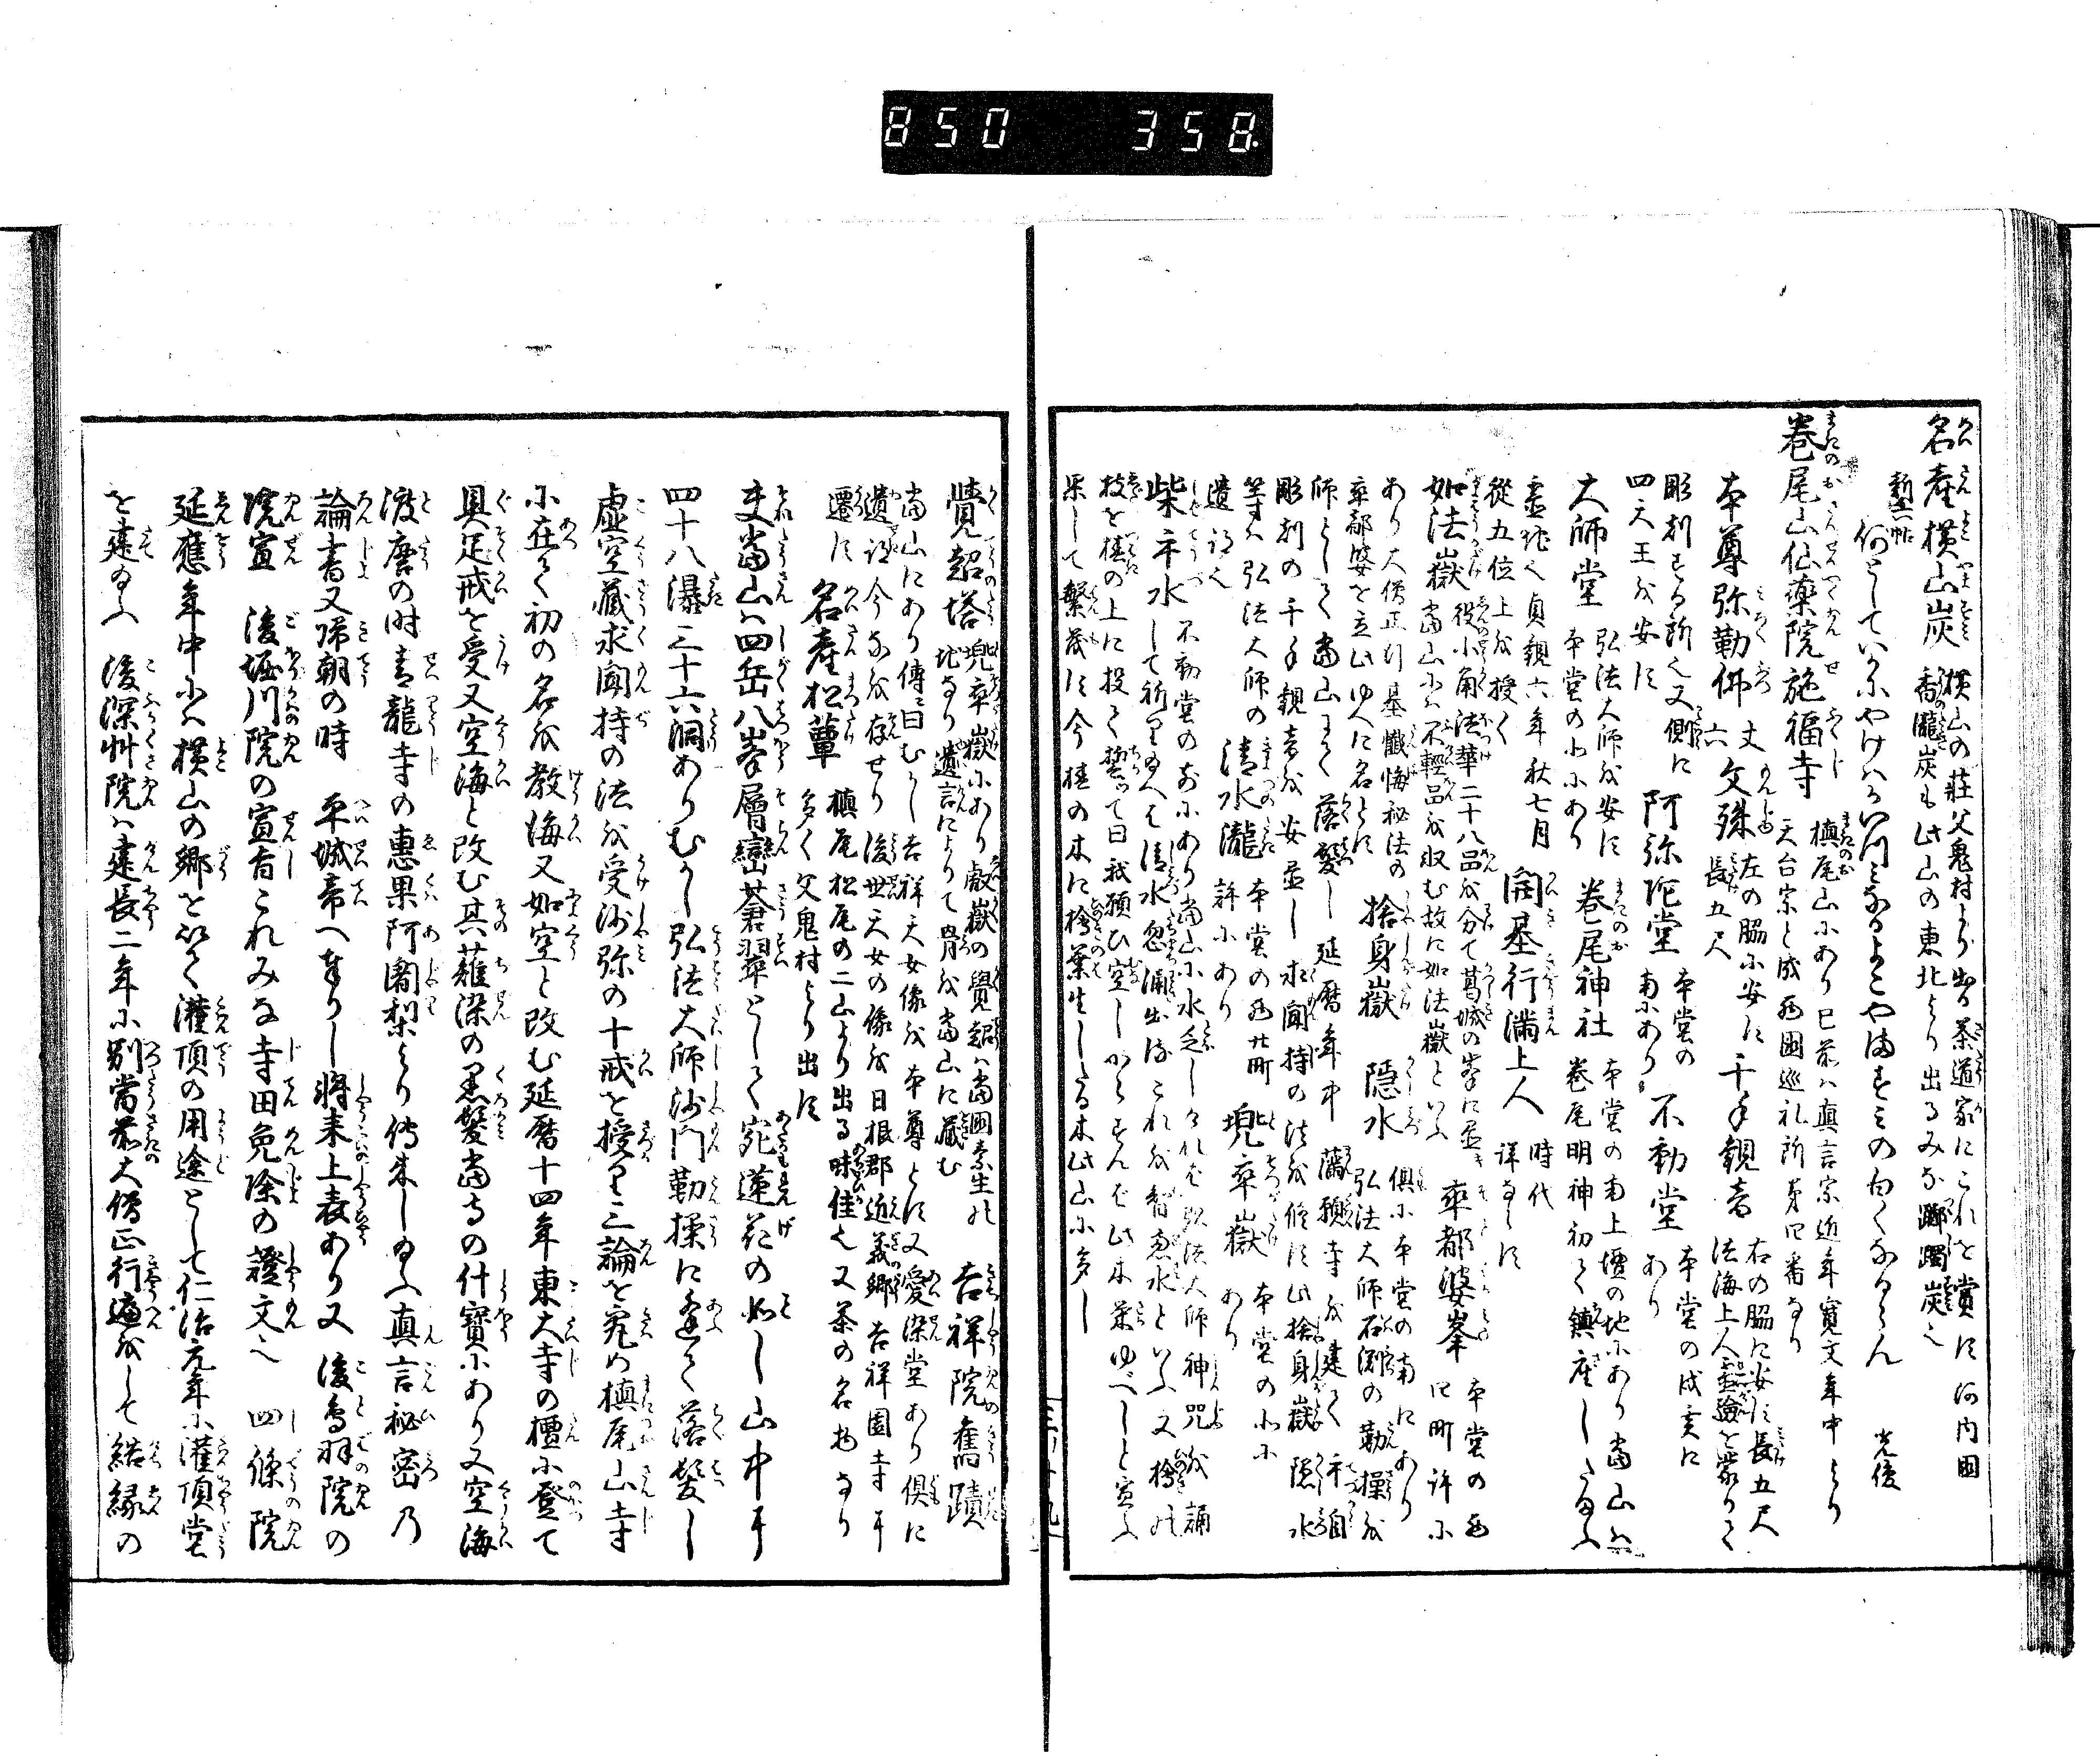 850 358
名産横山炭 横山の荘父鬼村より出る茶道家にこれを賞す河内国
香瀧炭も此山の東北より出るみな躑躅炭也
新六帖
何としていかにやけはかいつミなるよこやますミの白くなるらん 光俊
巻尾山仙薬院施福寺 槙尾山にあり已前ハ真言宗近年寛文年中より
天台宗と成西国巡礼所第四番なり
本尊弥勒仏 丈六 文殊 左の脇に安す長五尺 千手観音 右の脇に安す長五尺
法海上人霊験を蒙りて
彫刻する所也又側に
四天王を安す 阿弥陀堂 本堂の南にあり 不動堂 本堂の戌亥にあり
大師堂 弘法大師を安す本堂の北にあり 巻尾神社 本堂の南上壇の地にあり当山ハ
巻尾明神初て鎮座したまふ
霊地也貞観六年秋七月
従五位上を授く 開基行満上人 時代詳ならす
如法嶽 役小角法華二十八品を分て葛城の峯に置き
当山にハ不軽品を収む故に如法嶽といふ 卒都婆峯 本堂の西四町許に
あり大僧正行基懺悔秘法の
卒都婆を立しゆへに名とす 捨身嶽 隠水 倶に本堂の南にあり
弘法大師石淵の勤操を
師として当山にて落髪し延暦年中蘭頼寺を建て手自
彫刻の千手観音を安置し求聞持の法を修す此捨身嶽隠水
等ハ弘法大師の
遺跡也 清水瀧 本堂の西廿町許にあり 兜率嶽 本堂の北にあり
柴手水 不動堂の前にあり当山に水乏しけれバ弘法大師神咒を誦
して祈りたまへば清水忽涌出すこれを智恵水といふ又檜の
枝を椿の上に投て誓て曰我願ひ空しからずんバ此木栄ゆべしと宣ふ
果して繁茂す今椿の木に檜葉生したる木此山に多し
覚超塔 兜率嶽にあり叡嶽の覚超ハ当国素生の
地なり遺言によりて骨を当山に蔵む 吉祥院旧蹟
当山にあり伝ニ曰むかし吉祥天女像を本尊とす又愛染堂あり倶に
遺跡今なを存せり後世天女の像を日根郡近義郷吉祥園寺に
遷す 名産松蕈 槙尾松尾の二山より出る味佳也又茶の名物なり
多く父鬼村より出す
夫当山ハ四岳八峯層巒蒼翠として宛蓮花の如し山中に
四十八瀑三十六洞ありむかし弘法大師沙門勤操に逢て落髪し
虚空蔵求聞持の法を受沙弥の十戒を授り三論を究め槙尾山寺
に在て初の名を教海又如空と改む延暦十四年東大寺の壇に登て
具足戒を受又空海と改む其薙染の黒髪当寺の什宝にあり又空海
渡唐の時青龍寺の恵果阿闍梨より伝来したまふ真言秘密乃
論書又帰朝の時 平城帝へ奉りし将来上表あり又 後鳥羽院の
院宣 後堀川院の宣旨これみな寺田免除の證文也 四條院
延應年中にハ横山の郷を以て灌頂の用途として仁治元年に灌頂堂
を建たまふ 後深艸院ハ建長二年に別当前大僧正行遍をして結縁の